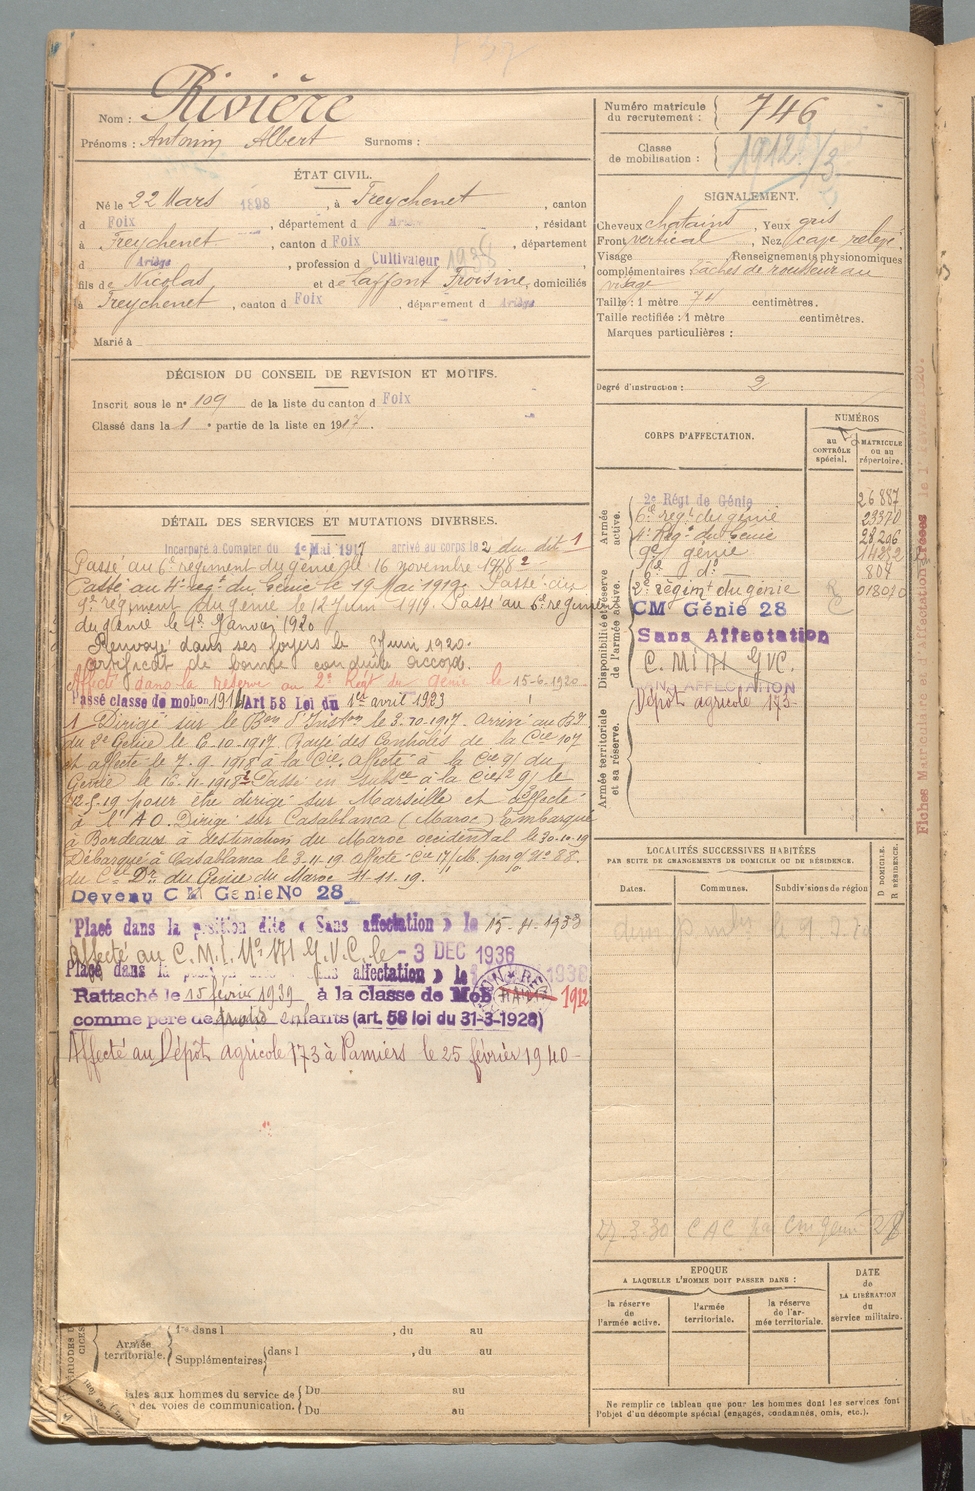 Nom : Rivière
Prénoms : Antonin Albert Surnoms :
ÉTAT CIVIL.
Né le 22 Mars 1898, à Freychenet, canton
d Foix, département d Ariège, résidant
à Freychenet, canton d Foix, département
d Ariège, profession d Cultivateur 1938
fils de Nicolas et de Laffont Froisine, domiciliés
à Freychenet, canton d Foix, département d Ariège
Marié à
DÉCISION DU CONSEIL DE REVISION ET MOTIFS.
Inscrit sous le n° 109 de la liste du canton d Foix
Classé dans la 1 e partie de la liste en 1917.
DÉTAIL DES SERVICES ET MUTATIONS DIVERSES.
Incorporé à Compter du 1er Mai 1917 arrivé au corps le 2 du dit 1
Passé au 6e régiment du génie le 16 novembre 1918 2
Passé au 4e reg.t du Génie le 19 Mai 1919. Passé au
9e régiment du génie le 12 Juin 1919. Passé au 6e régiment
du génie le 1er Janvier 1920
Renvoyé dans ses foyers le Juin 1920.
Certificat de bonne conduite accordé.
Affecté dans la réserve au 2e Régt du Génie le 15-6-1920
Passé classe de mobon 1916 Art 58 Loi du 1er avril 1923
1 Dirigé sur le Bon d'Instron le 3.10.1917. Arrivé au Bon
du 2e Génie le 6.10.1917. Rayé des Contrôles de la Cie 107
et affecté le 7.9.1918 à la Cie. affecté à la Cie 9/ du
Génie le 16.11.1918 2 Passé en subsce à la Cie 9/ le
12.5.19 pour être dirigé sur Marseille et affecté
à l'A O. Dirigé sur Casablanca (Maroc) Embarqué
à Bordeaux à destination du Maroc occidental le 30.10.19
Débarqué à Casablanca le 3.11.19. affecté Cie 17/ M. par o/ No 88.
du Cel Dr. du Génie du Maroc 11.11.19.
Devenu C M Génie No 28
Placé dans la position dite « Sans affectation » le 15.4.1933
Affecté au C.M.I. No 171 G.V.C. le - 3 DEC 1936
Placé dans la affectation » le 1938
Rattaché le 15 février 1939 à la classe de Mob 1912
comme père de trois enfants (art. 58 loi du 31-3-1928)
Affecté au Dépôt agricole 173 à Pamiers le 25 février 1940 -
Armée territoriale.
1re dans l , du au
Supplémentaires dans l , du au
iales aux hommes du service de Du au
des voies de communication. Du au
Numéro matricule du recrutement : 746
Classe de mobilisation : 1912
SIGNALEMENT.
Cheveux chatains, Yeux gris
Front vertical, Nez cave relevé.
Visage , Renseignements physionomiques
complémentaires taches de rousseur au
visage
Taille : 1 mètre 71 centimètres.
Taille rectifiée : 1 mètre centimètres.
Marques particulières :
Degré d'instruction : 2
CORPS D'AFFECTATION.
NUMÉROS
au CONTRÔLE spécial.
MATRICULE ou au répertoire.
Armée active.
2e Régt de Génie 26 887
6e regt du génie 23370
4e Régt du Génie 28206
9e/ génie 14282
6e/ do 807
Disponibilité et réserve de l'armée active.
2e regimt du génie 018010
CM Génie 28
Sans Affectation
C.M.I 171 G.V.C.
SANS AFFECTATION
Dépôt agricole 173-
Armée territoriale et sa réserve.
LOCALITÉS SUCCESSIVES HABITÉES
PAR SUITE DE CHANGEMENTS DE DOMICILE OU DE RÉSIDENCE.
Dates. Communes. Subdivisions de région
D DOMICILE.
R RÉSIDENCE.
27-3-30 CAC génie 28
EPOQUE
A LAQUELLE L'HOMME DOIT PASSER DANS :
la réserve de l'armée active.
l'armée territoriale.
la réserve de l'armée territoriale.
DATE de LA LIBÉRATION du service militaire.
Ne remplir ce tableau que pour les hommes dont les services font
l'objet d'un décompte spécial (engagés, condamnés, omis, etc.).